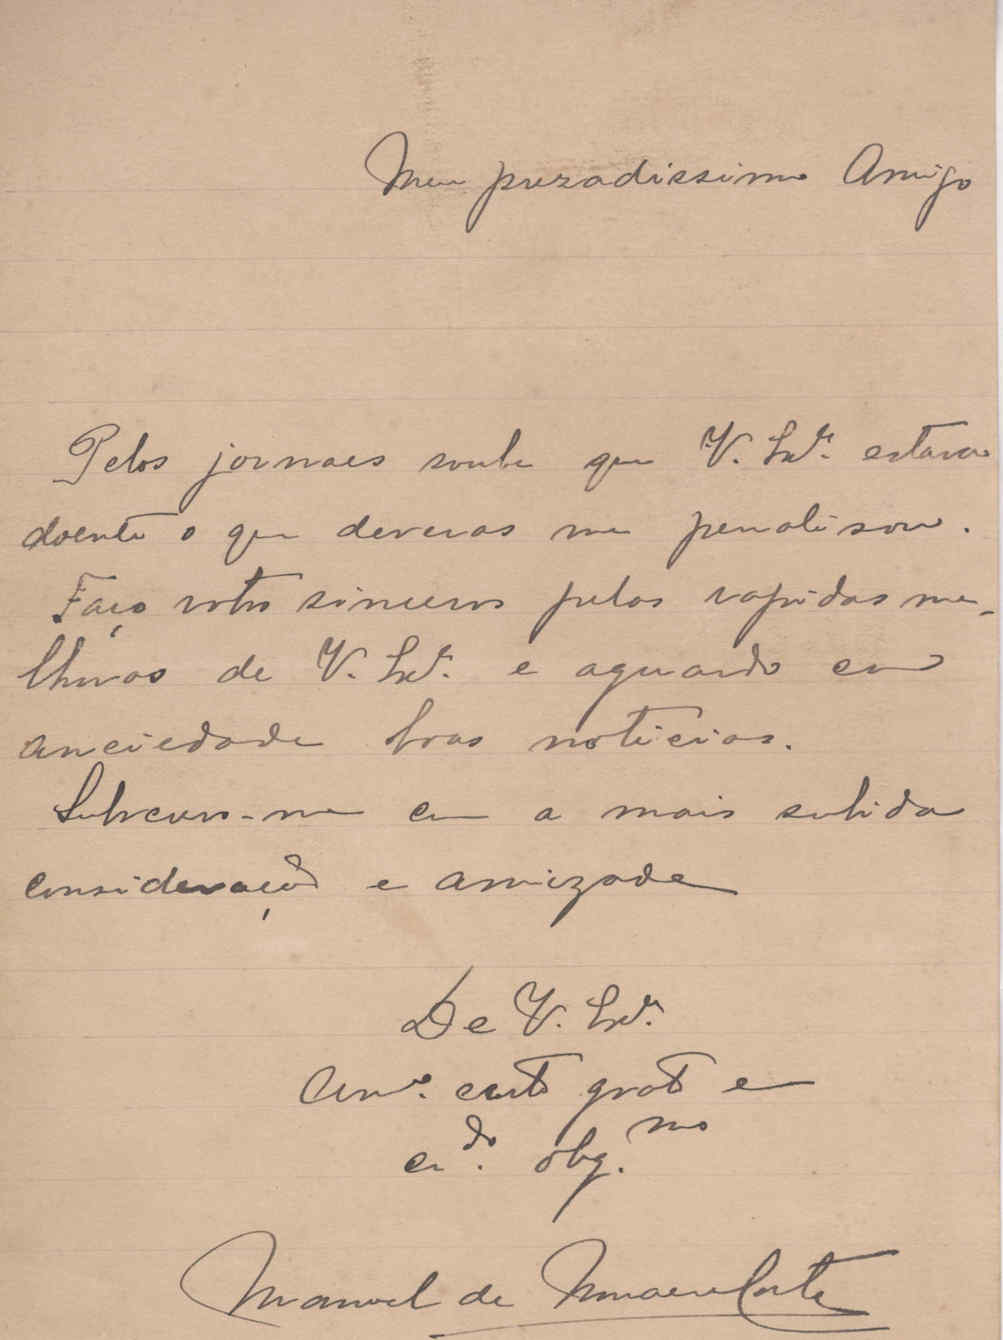 Meu prezadissimo Amigo
Pelos jornaes soube que V. Exª. estava
doente o que deveras me penalisou.
Faço votos sinceros pelas rapidas me-
lhoras de V. Exª. e aguardo com
anciedade boas noticias.
Subscrevo-me com a mais subida
consideração e amizade
De V. Exª.
Amº. certo grato e
crdo. obg.mo
Manoel de